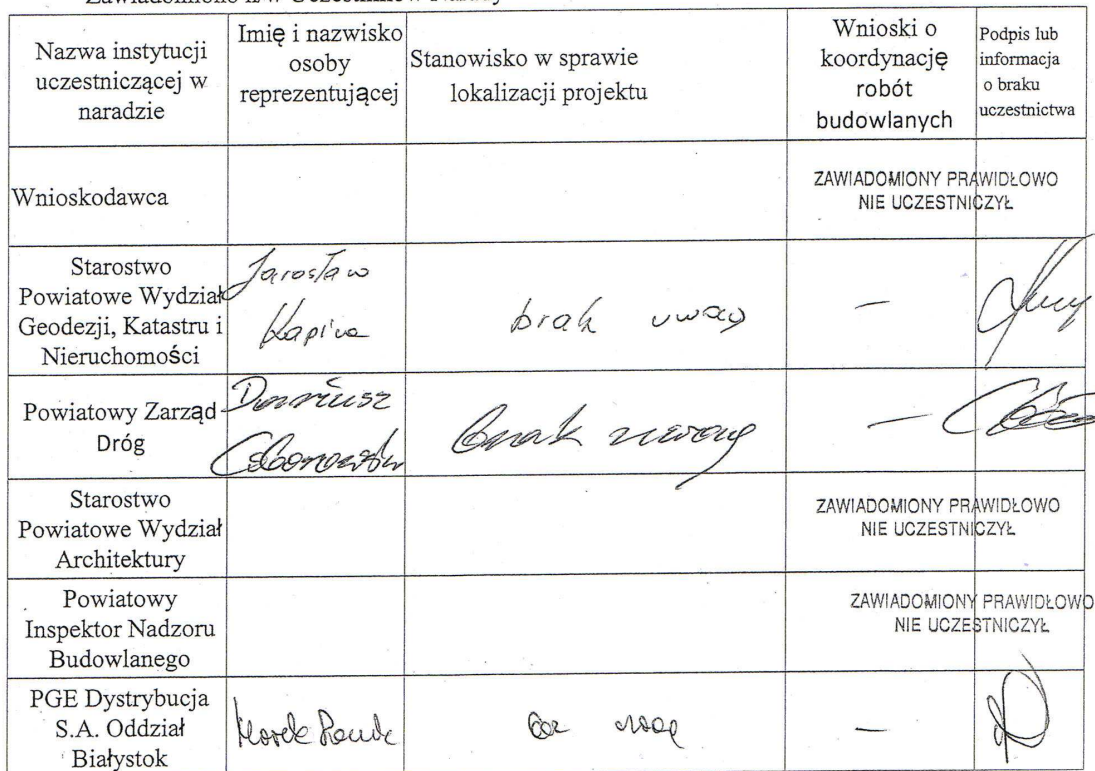 Zawiadomiono n/w Uczestników Narady
Nazwa instytucji
uczestniczącej w
naradzie
Imię i nazwisko
osoby
reprezentującej
Stanowisko w sprawie
lokalizacji projektu
Wnioski o
koordynację
robót
budowlanych
Podpis lub
informacja
o braku
uczestnictwa
Wnioskodawca
ZAWIADOMIONY PRAWIDŁOWO
NIE UCZESTNICZYŁ
Starostwo
Powiatowe Wydział
Geodezji, Katastru i
Nieruchomości
Jarosław
brak uwag
—
Powiatowy Zarząd
Dróg
Dariusz
brak uwag
—
Starostwo
Powiatowe Wydział
Architektury
ZAWIADOMIONY PRAWIDŁOWO
NIE UCZESTNICZYŁ
Powiatowy
Inspektor Nadzoru
Budowlanego
ZAWIADOMIONY PRAWIDŁOWO
NIE UCZESTNICZYŁ
PGE Dystrybucja
S.A. Oddział
Białystok
Marek
bez uwag
—